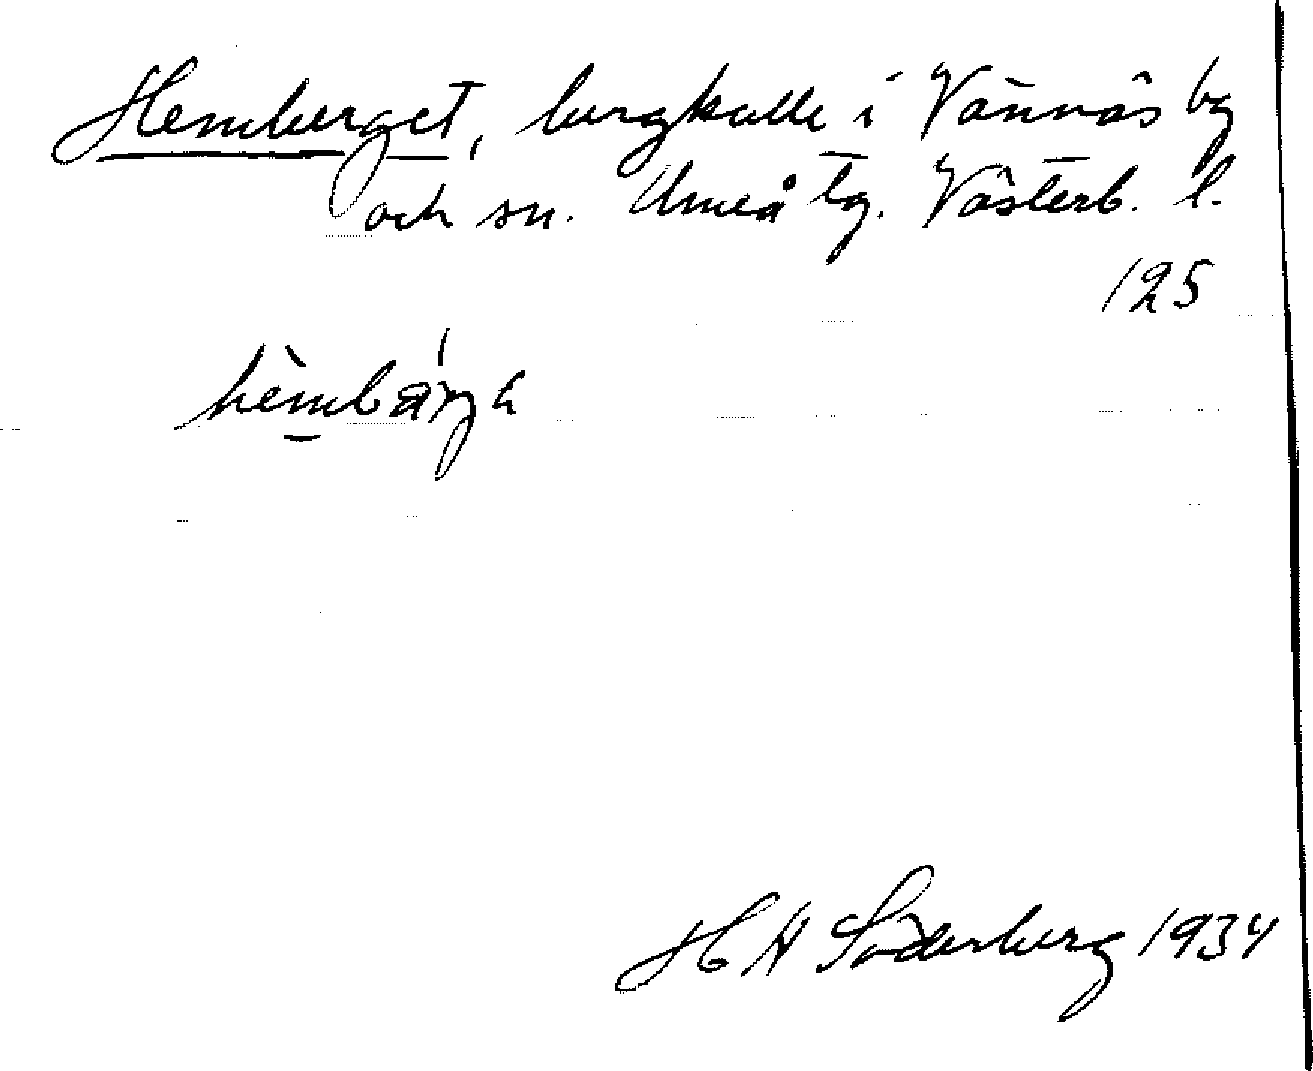 Hemberget, bergkulle i Vännäs by
och sn. Umeå tg. Västerb. l.
125
H A Söderberg 1934